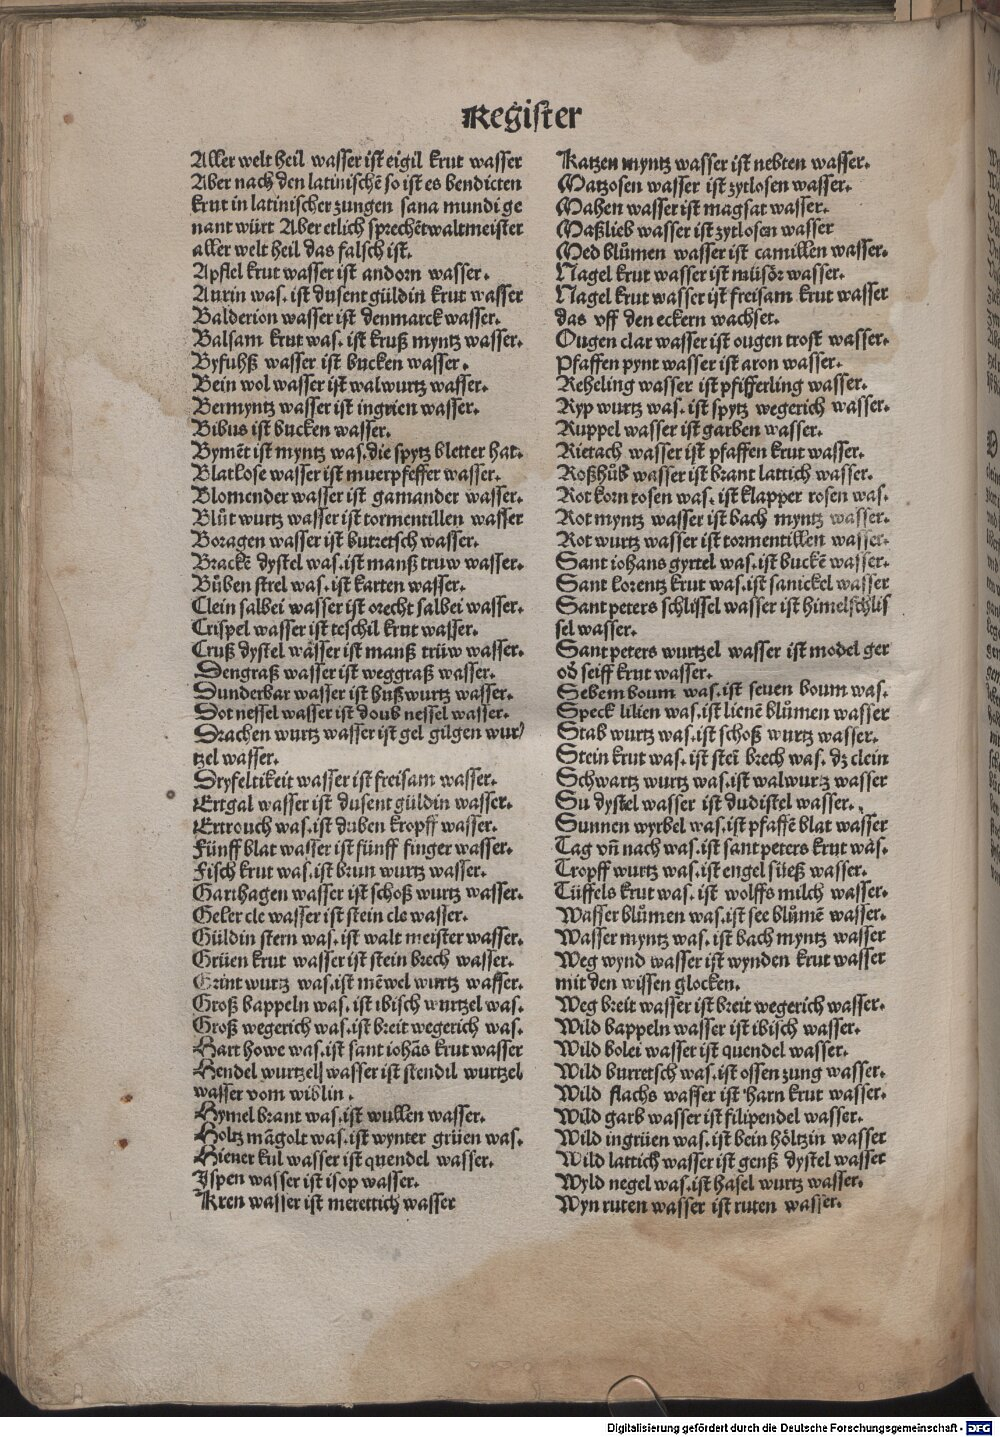 Register
Aller welt heil wasser ist eigil krut wasser
Aber nach den latinischē so ist es bendicten
krut in latinischer zungen sana mundi ge
nant würt Aber etlich sprechēt waltmeister
aller welt heil das falsch ist.
Apffel krut wasser ist andorn wasser.
Aurin was. ist dusent güldin krut wasser
Balderion wasser ist denmarck wasser.
Balsam krut was. ist kruß myntz wasser.
Byfuhß wasser ist bucken wasser.
Bein wol wasser ist walwurtz wasser.
Bermyntz wasser ist ingrien wasser.
Bibus ist bucken wasser.
Bymēt ist myntz was. die spytz bletter hat.
Blatlose wasser ist muerpfeffer wasser.
Blomender wasser ist gamander wasser.
Blůt wurtz wasser ist tormentillen wasser
Boragen wasser ist butretsch wasser.
Brackē dystel was. ist manß truw wasser.
Bůben strel was. ist karten wasser.
Clein salbei wasser ist orecht salbei wasser.
Crispel wasser ist teschil krut wasser.
Cruß dystel wasser ist manß trüw wasser.
Dengraß wasser ist weggraß wasser.
Dunderbar wasser ist hußwurtz wasser.
Dot nessel wasser ist doub nessel wasser.
Drachen wurtz wasser ist gel gilgen wur/
tzel wasser.
Dryfeltikeit wasser ist freisam wasser.
Ertgal wasser ist dusent güldin wasser.
Ertrouch was. ist duben kropff wasser.
Fünff blat wasser ist fünff finger wasser.
Fisch krut was. ist brun wurtz wasser.
Garthagen wasser ist schoß wurtz wasser.
Geler cle wasser ist stein cle wasser.
Güldin stern was. ist walt meister wasser.
Grüen krut wasser ist stein brech wasser.
Grint wurtz was. ist mēwel wurtz wasser.
Groß bappeln was. ist ibisch wurtzel was.
Groß wegerich was. ist breit wegerich was.
Hart howe was. ist sant iohās krut wasser
Hendel wurtzels wasser ist stendil wurtzel
wasser vom wiblin.
Hymel brant was. ist wullen wasser.
Holtz māgolt was. ist wynter grüen was.
Hiener kul wasser ist quendel wasser.
Jspen wasser ist isop wasser.
Kren wasser ist merettich wasser
Katzen myntz wasser ist nebten wasser.
Matzosen wasser ist zytlosen wasser.
Mahen wasser ist magsat wasser.
Maßlieb wasser ist zytlosen wasser
Med blůmen wasser ist camillen wasser.
Nagel krut wasser ist müsör wasser.
Nagel krut wasser ist freisam krut wasser
das vff den eckern wachset.
Ougen clar wasser ist ougen trost wasser.
Pfaffen pynt wasser ist aron wasser.
Reheling wasser ist pfifferling wasser.
Ryp wurtz was. ist spytz wegerich wasser.
Ruppel wasser ist garben wasser.
Rietach wasser ist pfaffen krut wasser.
Roßhůb wasser ist brant lattich wasser.
Rot korn rosen was. ist klapper rosen was.
Rot myntz wasser ist bach myntz wasser.
Rot wurtz wasser ist tormentillen wasser.
Sant iohans gyrtel was. ist buckē wasser.
Sant Lorentz krut was. ist sanickel wasser
Sant peters schlissel wasser ist himelschlis
sel wasser.
Sant peters wurtzel wasser ist model ger
od seiff krut wasser.
Sebem boum was. ist seuen boum was.
Speck lilien was. ist lienē blůmen wasser
Stab wurtz was. ist schoß wurtz wasser.
Stein krut was. ist stei brech was. dz clein
Schwartz wurtz was. ist walwurtz wasser
Su dystel wasser ist dudistel wasser.
Sunnen wyrbel was. ist pfaffē blat wasser
Tag vn̄ nach was. ist sant peters krut was.
Tropff wurtz was. ist engel süeß wasser.
Tüffels krut was. ist wolffs milch wasser.
Wasser blůmen was. ist see blůmē wasser.
Wasser myntz was. ist bach myntz wasser
Weg wynd wasser ist wynden krut wasser
mit den wissen glocken.
Weg breit wasser ist breit wegerich wasser.
Wild bappeln wasser ist ibisch wasser.
Wild bolei wasser ist quendel wasser.
Wild burretsch was. ist ossen zung wasser.
Wild flachs wasser ist harn krut wasser.
Wild garb wasser ist filipendel wasser.
Wild ingrüen was. ist bein höltzin wasser
Wild lattich wasser ist genß dystel wasser
Wyld negel was. ist hasel wurtz wasser.
Wyn ruten wasser ist ruten wasser.
Digitalisierung gefördert durch die Deutsche Forschungsgemeinschaft - DFG